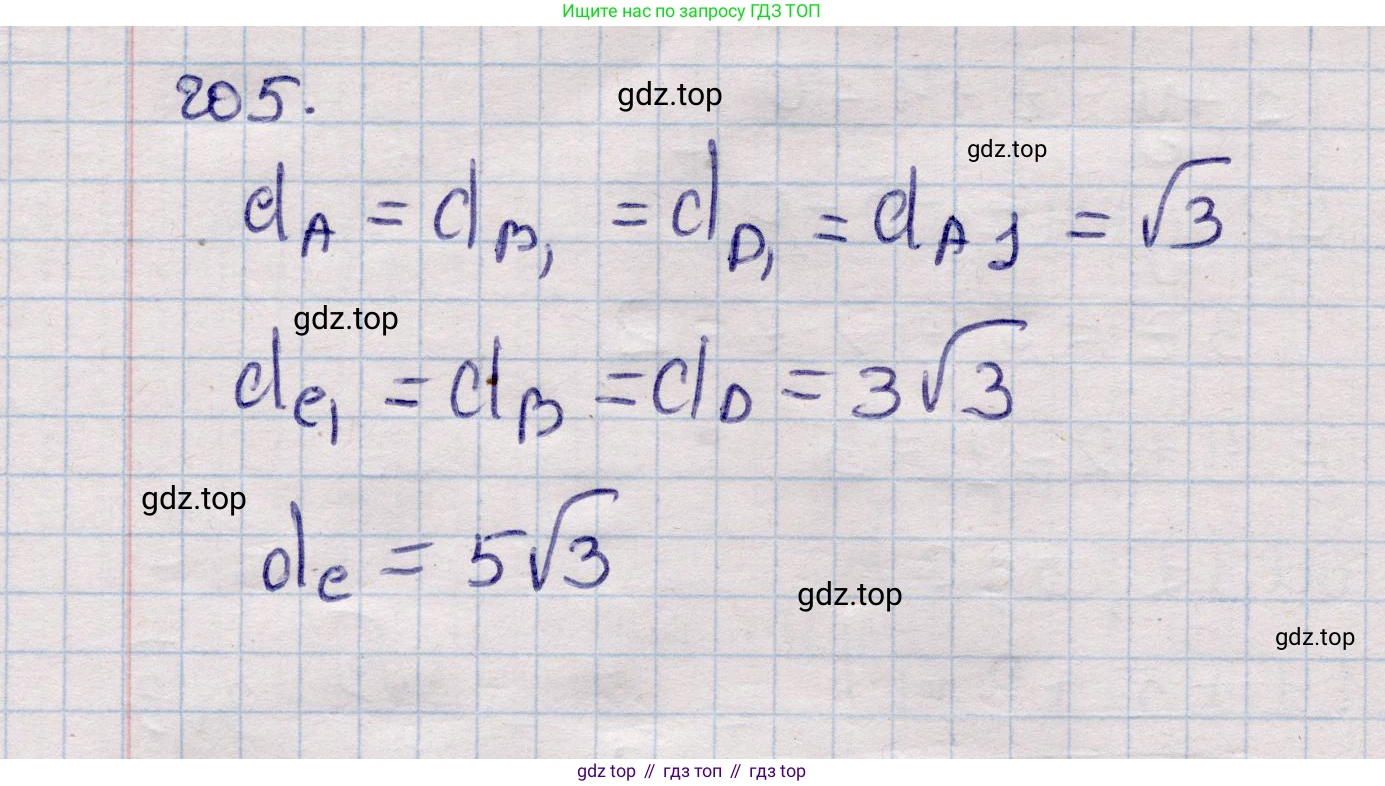 Ищите нас по запросу ГДЗ ТОП
205.
gdz.top
gdz.top
d_A = d_B₁ = d_D₁ = d_A₁ = √3
gdz.top
d_C₁ = d_B = d_D = 3√3
gdz.top
d_C = 5√3
gdz.top
gdz.top
gdz top // гдз топ // гдз top